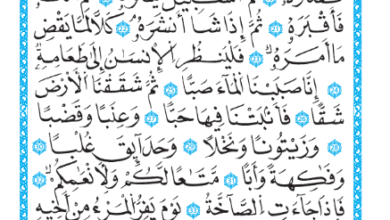 فَأَقْبَرَهُۥ ٢١ ثُمَّ إِذَا شَآءَ أَنشَرَهُۥ ٢٢ كَلَّا لَمَّا يَقْضِ
مَآ أَمَرَهُۥ ٢٣ فَلْيَنظُرِ ٱلْإِنسَٰنُ إِلَىٰ طَعَامِهِۦٓ
٢٤ أَنَّا صَبَبْنَا ٱلْمَآءَ صَبًّا ٢٥ ثُمَّ شَقَقْنَا ٱلْأَرْضَ
شَقًّا ٢٦ فَأَنۢبَتْنَا فِيهَا حَبًّا ٢٧ وَعِنَبًا وَقَضْبًا
٢٨ وَزَيْتُونًا وَنَخْلًا ٢٩ وَحَدَآئِقَ غُلْبًا ٣٠
وَفَٰكِهَةً وَأَبًّا ٣١ مَّتَٰعًا لَّكُمْ وَلِأَنْعَٰمِكُمْ ٣٢
فَإِذَا جَآءَتِ ٱلصَّآخَّةُ ٣٣ يَوْمَ يَفِرُّ ٱلْمَرْءُ مِنْ أَخِيهِ